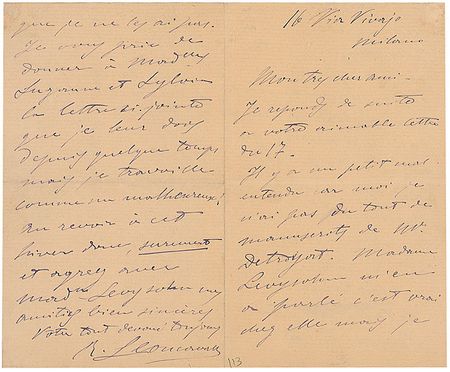 16 Via Vivajo
Milano
Mon tres cher ami -
Je reponds de suite
a votre aimable lettre
du 17.
Il y a un petit mal
entendu car moi je
n'ai pas du tout de
manuscrits de Mr.
Detroyat. Madame
Levysohn m'en
a parlé c'est vrai
chez elle mais je
que je ne les ai pas.
Je vous prie de
donner à
Suzanne et Sylvain
la lettre ci-jointe
que je leur dois
depuis quelque temps
mais je travaille
comme un malheureux!
au revoir à cet
hiver donc, surement
et agreez avec
Levysohn mes
amitiés bien sincères
Votre tout devoué toujours
R. Leoncavallo
113